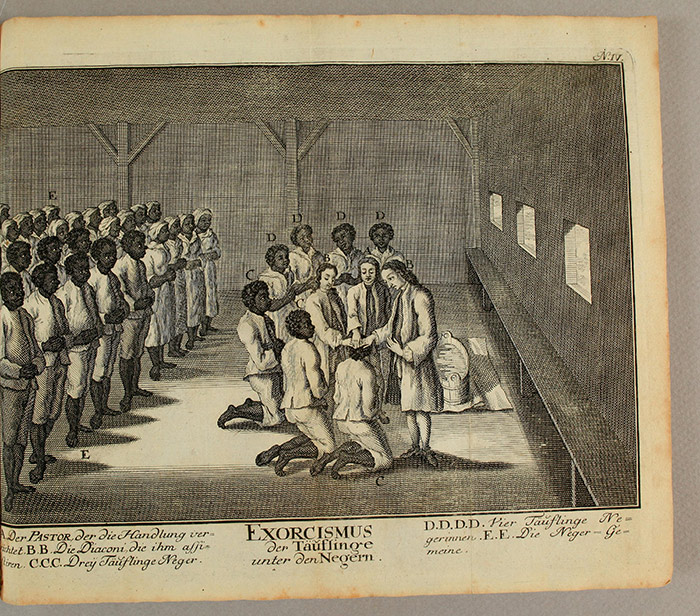 N. IV.
E
D
D
D
D
C
B
B
E
C
A Der PASTOR, der die Handlung ver=
richtet. B B. Die Diaconi, die ihm assi=
tiren. C.C.C. Drey Täuflinge Neger.
EXORCISMUS
der Täuflinge
unter den Negern.
D.D.D.D. Vier Täuflinge Ne=
gerinnen. E.E. Die Neger-Ge=
meine.